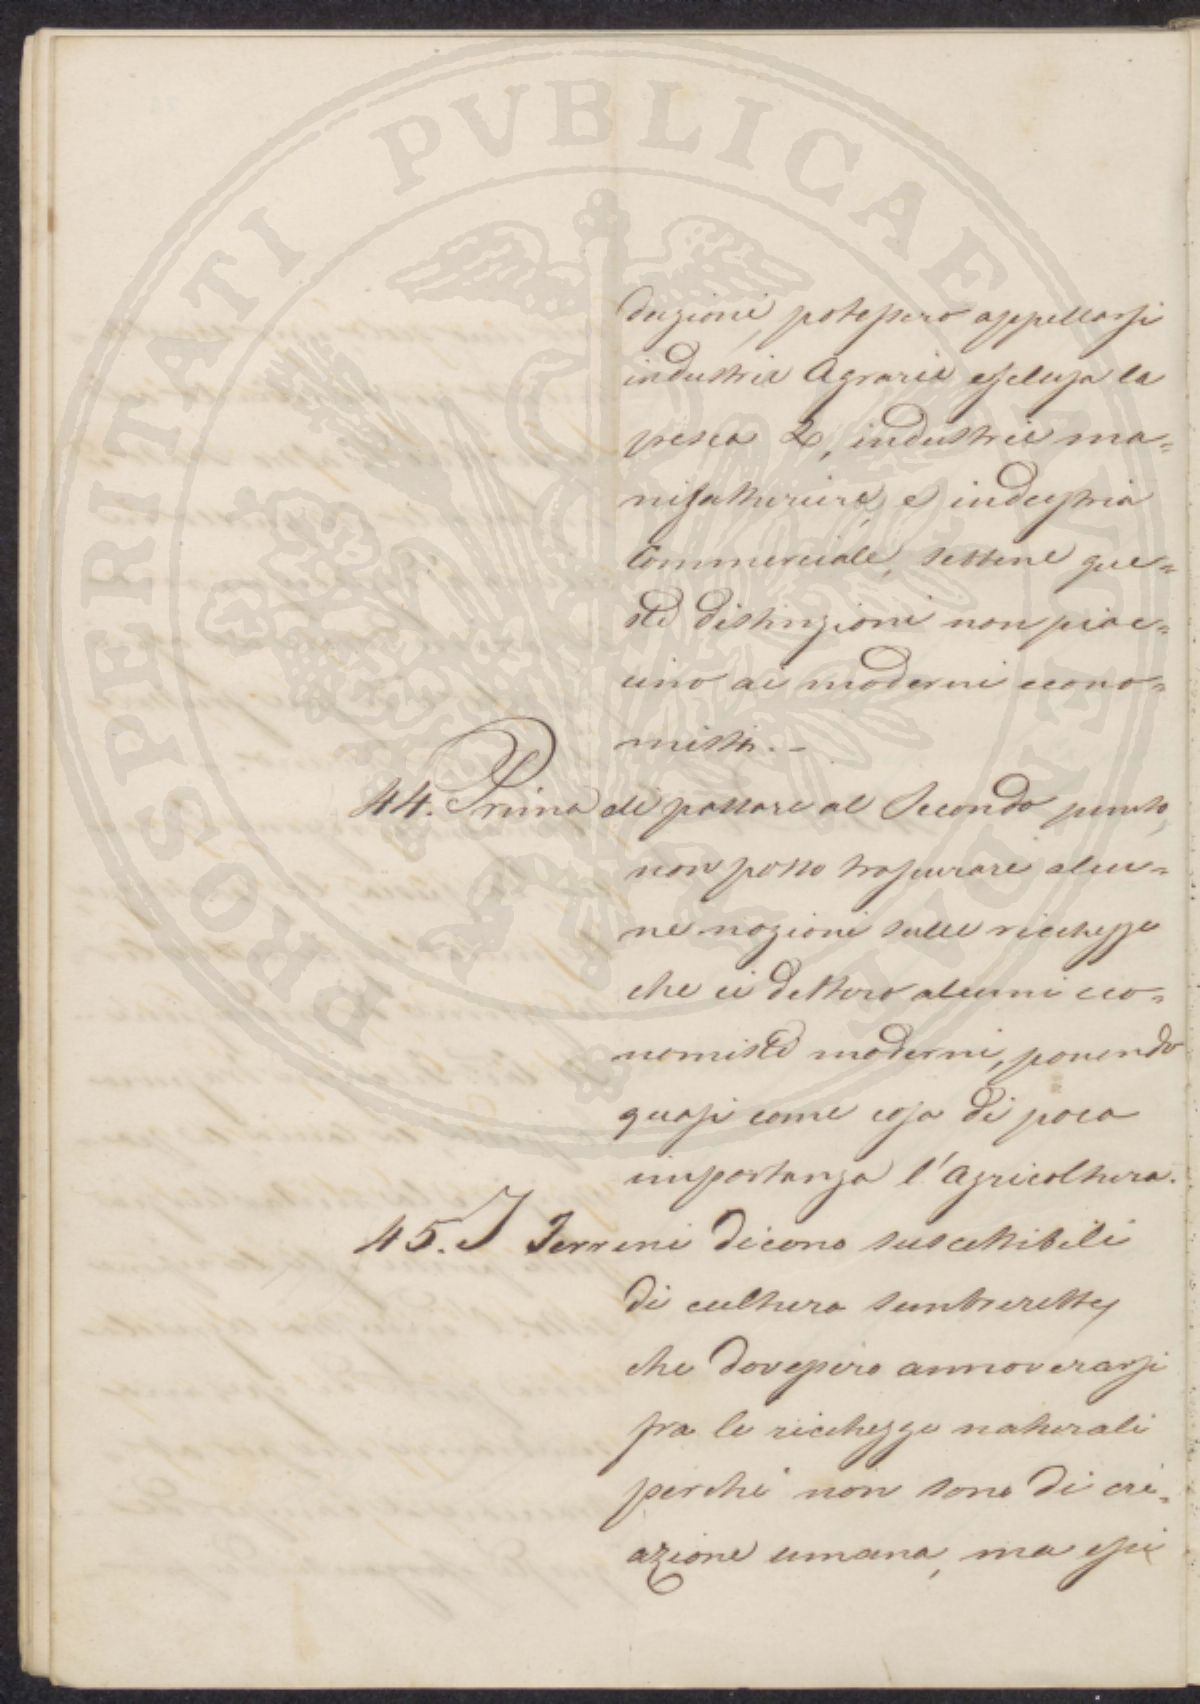 PROSPERITATI PVBLICAE AVGENDAE
duzioni, potessero appellarsi
industrie Agrarie esclusa la
pesca 2, industrie ma=
nifatturiere, e industria
Commerciale, sebbene que=
ste distinzioni non piac=
cino ai moderni econo=
misti. -
44. Prima di passare al Secondo punto,
non posso trascurare alcu=
ne nozioni sulle ricchezze
che ci dettero alcuni eco=
nomisti moderni, ponendo
quasi come cosa di poca
importanza l'Agricoltura.
45. I Terreni dicono suscettibili
di cultura
che dovessero annoverarsi
fra le ricchezze naturali
perchè non sono di cre=
azione umana, ma essi